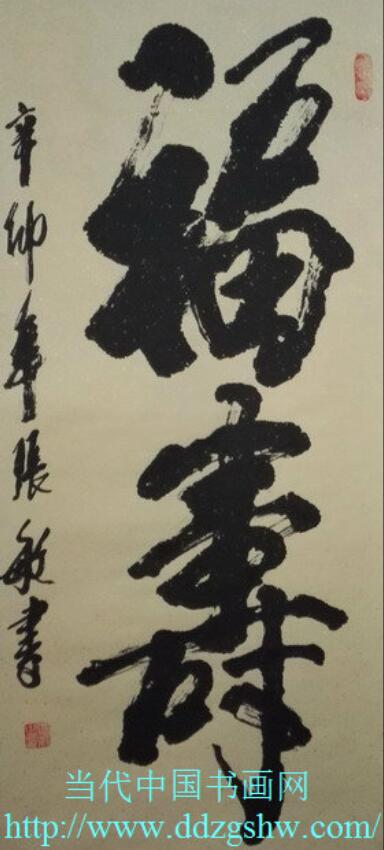 福壽
辛卯年張敏書
当代中国书画网
http://www.ddzgshw.com/